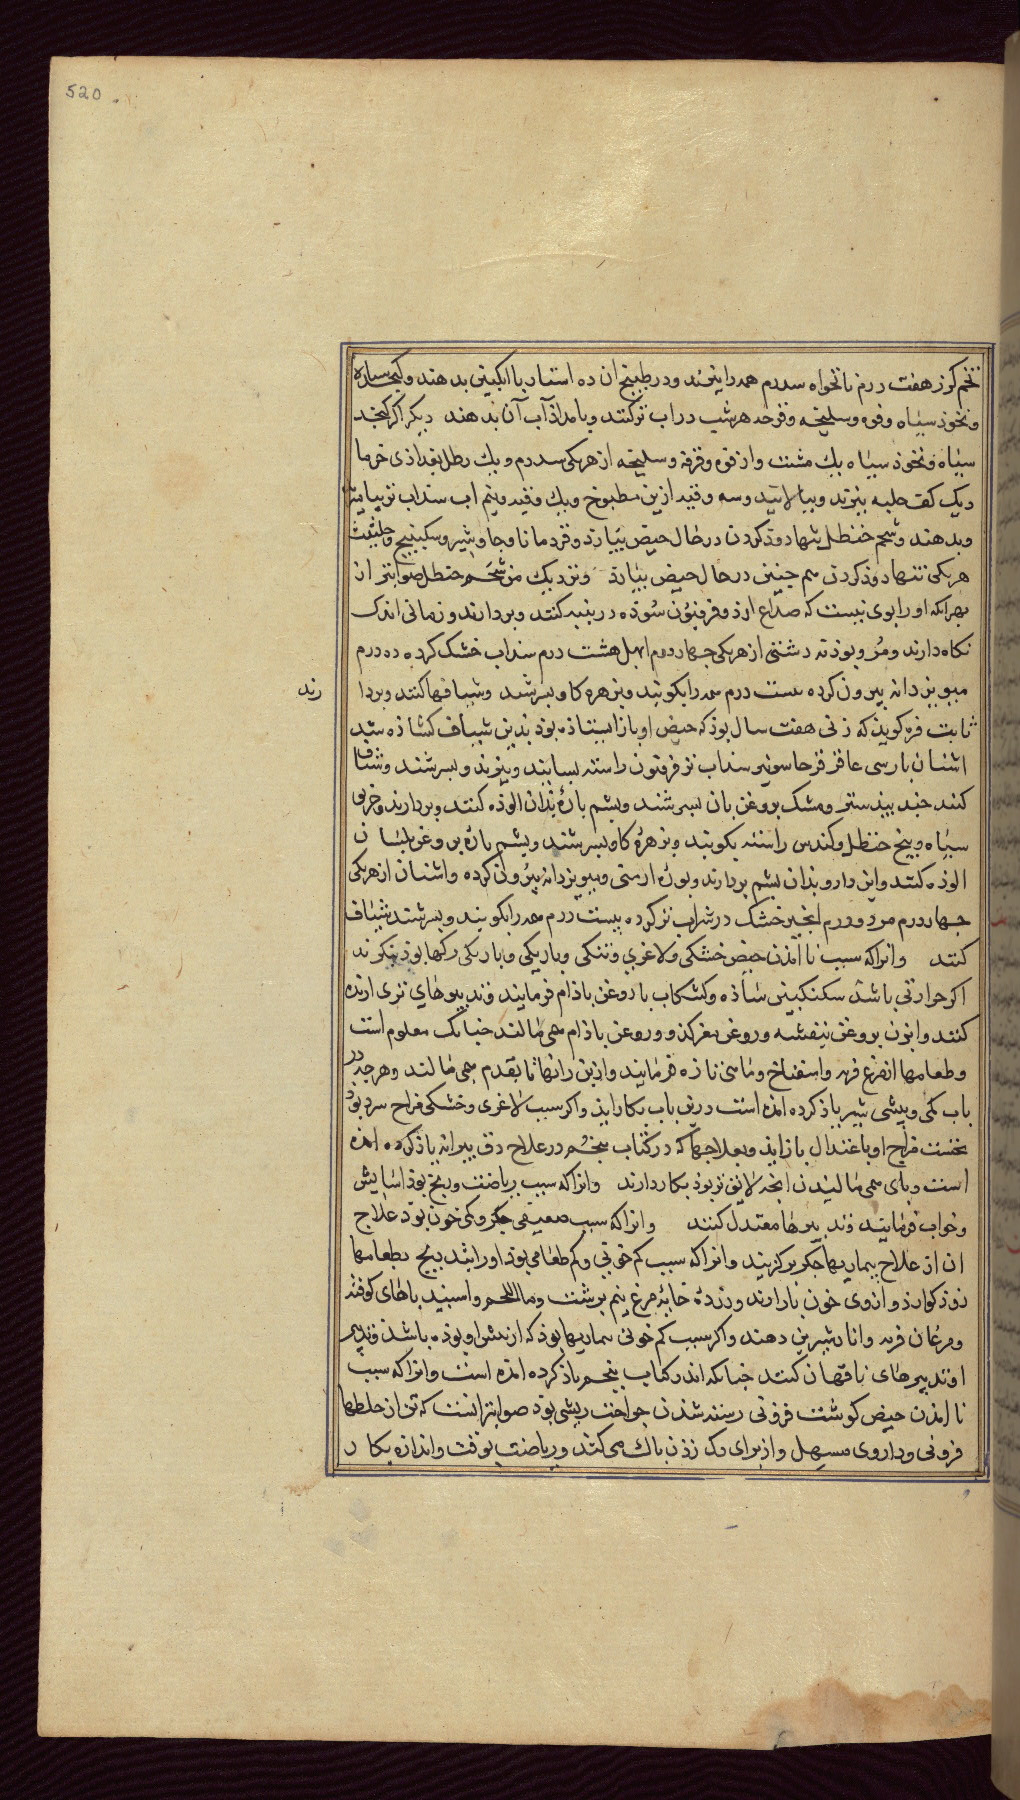 520
تخم کرز هفت درم نانخواه سدرم همه را بپزند و در طبیخ ان ده استار با انکبین بدهند و کنجد سیاه
و نخود سیاه و فوه و سلیخه و قرحه هر شب در اب تر کنند و بامداذ آب آن بدهند دیکر اکر کنجد
سیاه و نخوذ سیاه یک مشت و از فوه و قرفه و سلیخه از هر یکی سدرم و یک رطل بغداذی خرما
و یک کف حلبه بپزند و بپالایند و سه وقیه ازین مطبوخ و یک وقیه و نیم اب سنداب تر بیامیزند
و بدهند و شحم حنظل تنها دوذ کردن در حال حیض بیارد و قردمانا و جاوشیر و سکبینج و حلتیت
هر یکی تنها دوذ کردن هم جنین در حال حیض بیارد و نزدیک من شحم حنظل صوابتر از
بهر انکه او را بوی نیست که صداع ارد و فرفیون سوذه در پنبه کنند و بردارند و زمانی اندک
نکاه دارند و مر و بوذنه دشتی از هر یکی جهار درم ابهل هشت درم سنداب خشک کرده ده درم
میویز دانه بیرون کرده بیست درم همه را بکوبند و بزهره کاو بسرشند و شیافها کنند و بردا
رند
ثابت قره کویذ که زنی هفت سال بوذ که حیض او باز ایستاذه بوذ بذین شیاف کشاذه شد
اشنان بارسی عاقرقرحا سونیز سنداب تر فرفیون راسته بسایند و بپزند و بسرشند و شیاف
کنند جند بیذستر و مشک بروغن بان بسرشند و پشم پارهٔ بذان الوذه کنند و بردارند و خربق
سیاه و بیخ حنظل و کندس راسته بکوبند و بزهرهٔ کاو بسرشند و پشم پارهٔ بروغن بلسان
الوذه کنند و این دارو بذان پشم بردارند و بورهٔ ارمنی و میویز دانه بیرون کرده و اشنان از هر یکی
جهار درم مر دو درم انجیر خشک در شراب تر کرده بیست درم همه را بکوبند و بسرشند شیاف
کنند و انرا که سبب نا امذن حیض خشکی و لاغری و تنکی و باریکی و باریکی رکها بوذ بنکرند
اکر حرارتی باشذ سکنکبین ساذه و کشکاب با روغن باذام فرمایند و تدبیرهای تری ارنده
کنند و ابزن بروغن بنفشه و روغن مغز کذو و روغن باذام همی مالند جنانک معلوم است
و طعامها از مرغ فربه و اسفناخ و ماهی تازه فرمایند و ازین رانها تا بقدم همی مالند و هرجه در
باب کمی و بیشی شیر یاذ کرده امذه است درین باب بکار ایذ و اکر سبب لاغری و خشکی مزاج سرد بوذ
نخست مزاج او باعتدال باز ایذ و بعلاجها که در کتاب پنجم در علاج دق پیرانه یاذ کرده امذه
است و بای همی مالیدن انجه لایق تر بوذ بکار دارند و انرا که سبب ریاضت و رنج بوذ اسایش
و خواب فرمایند و تدبیرها معتدل کنند و انرا که سبب ضعیفی جکر و کمی خون بوذ علاج
ان از علاج بیماریهاء جکر بر کزینند و انرا که سبب کم خونی و کم طعامی بوذ او را بتدریج بطعامها
زوذ کوارذ و ازوی خون باز ارند و زردهٔ خایهٔ مرغ نیم برشت و ماء اللحم و اسبیذ باهای کوفته
و مرغان فربه و انار شیرین دهند و اکر سبب کم خونی بیماریها بوذ که از پیش او بوذه باشذ و تدبیر
او تدبیرهای ناقهان کنند جنانکه اندر کتاب پنجم یاذ کرده امذه است و انرا که سبب
نا امذن حیض کوشت فزونی رسته شذن جراحت ریشی بوذ صوابتر انست که تن از خلطهاء
فزونی و داروی مسهل و از برای رک زذن پاک می کنند و ریاضت بوقت و اندازه بکار